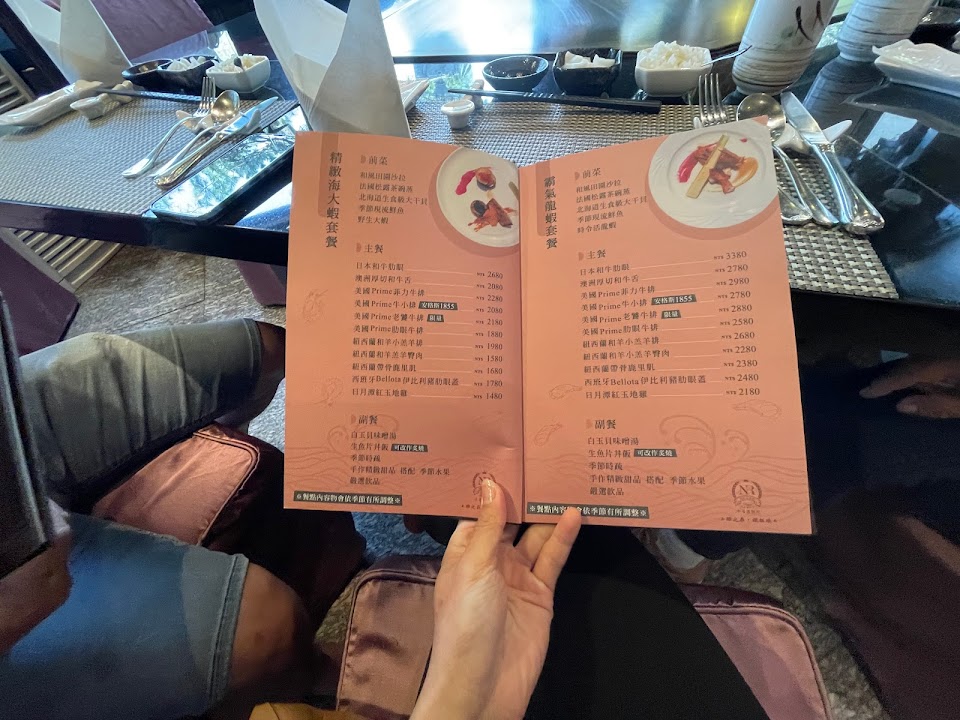 精緻海大蝦套餐
前菜
和風田園沙拉
法國松露茶碗蒸
北海道生食級大干貝
季節現流鮮魚
野生大蝦
主餐
日本和牛肋眼 NT$ 2680
澳洲厚切和牛舌 NT$ 2080
美國Prime菲力牛排 NT$ 2280
美國Prime牛小排 安格斯1855 NT$ 2080
美國Prime老饕牛排 限量 NT$ 2180
美國Prime肋眼牛排 NT$ 1880
紐西蘭和羊小羔羊排 NT$ 1980
紐西蘭和羊小羔羊臀肉 NT$ 1580
紐西蘭帶骨鹿里肌 NT$ 1680
西班牙Bellota伊比利豬肋眼蓋 NT$ 1780
日月潭紅玉地雞 NT$ 1480
副餐
白玉貝味噌湯
生魚片丼飯 可改作炙燒
季節時蔬
手作精緻甜品 搭配 季節水果
嚴選飲品
※餐點內容物會依季節有所調整※
霸氣龍蝦套餐
前菜
和風田園沙拉
法國松露茶碗蒸
北海道生食級大干貝
季節現流鮮魚
時令活龍蝦
主餐
日本和牛肋眼 NT$ 3380
澳洲厚切和牛舌 NT$ 2780
美國Prime菲力牛排 NT$ 2980
美國Prime牛小排 安格斯1855 NT$ 2780
美國Prime老饕牛排 限量 NT$ 2880
美國Prime肋眼牛排 NT$ 2580
紐西蘭和羊小羔羊排 NT$ 2680
紐西蘭和羊小羔羊臀肉 NT$ 2280
紐西蘭帶骨鹿里肌 NT$ 2380
西班牙Bellota伊比利豬肋眼蓋 NT$ 2480
日月潭紅玉地雞 NT$ 2180
副餐
白玉貝味噌湯
生魚片丼飯 可改作炙燒
季節時蔬
手作精緻甜品 搭配 季節水果
嚴選飲品
※餐點內容 會依季節有所調整※